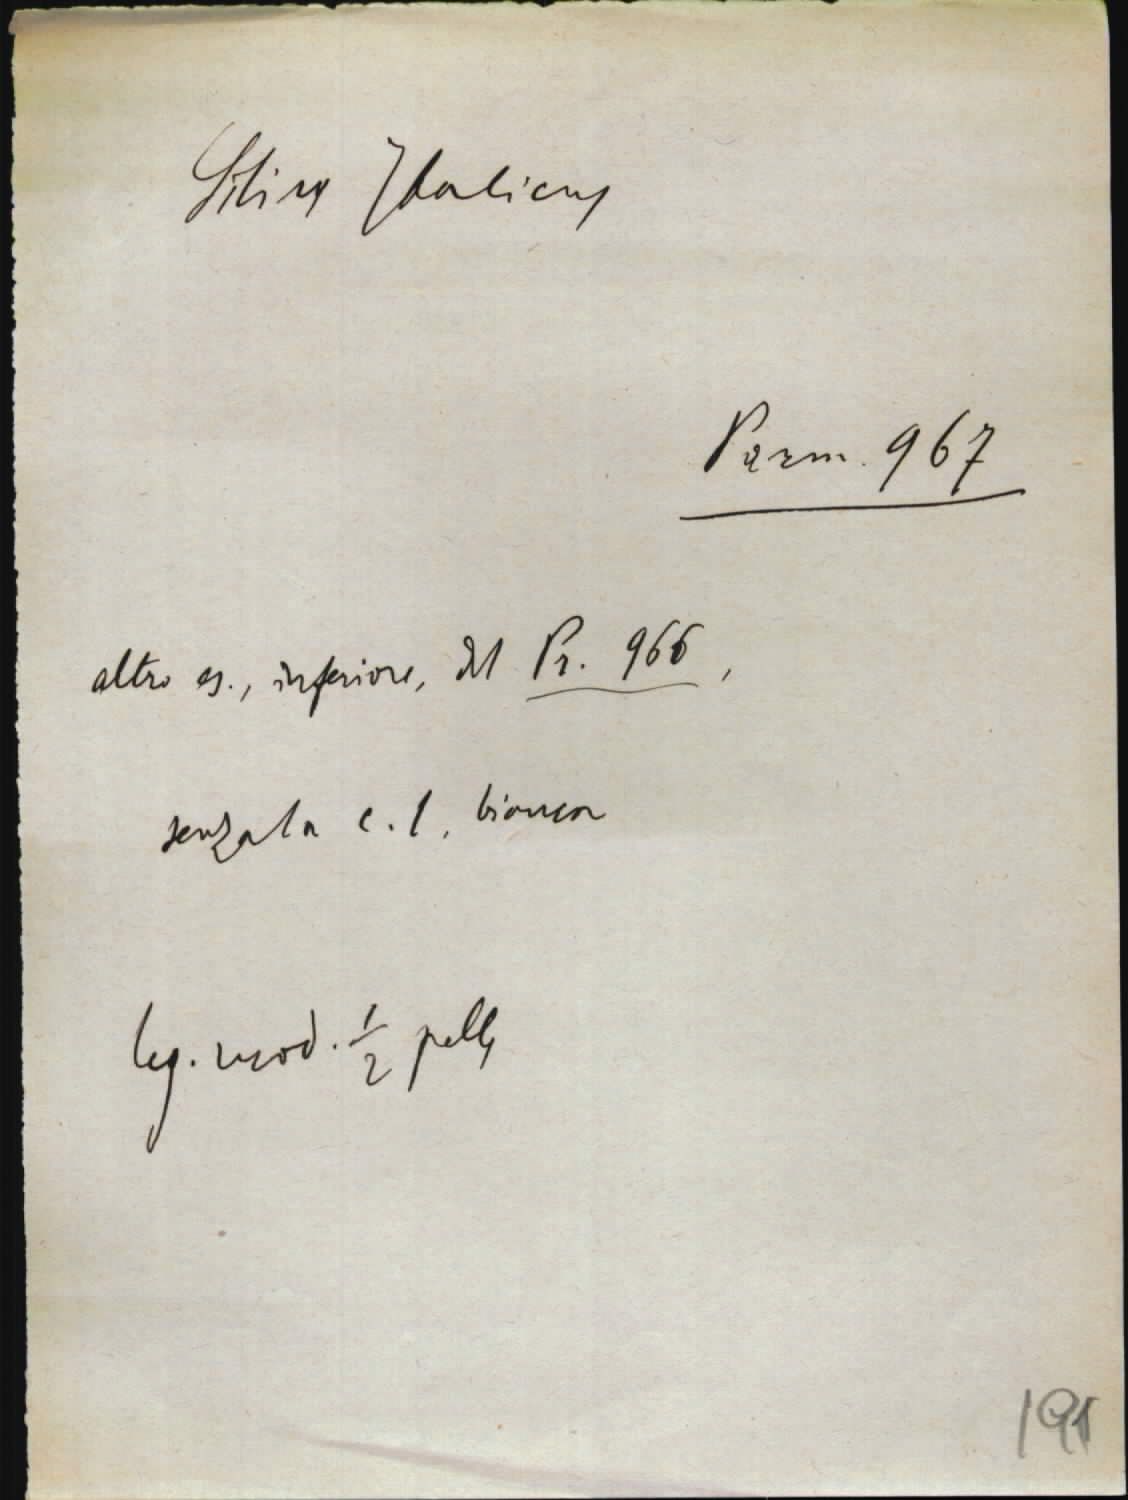 Silius Italicus
Parm. 967
altro es., inferiore, del Pr. 966,
senza la c. 1, bianca
leg. mod. 1/2 pelle
191